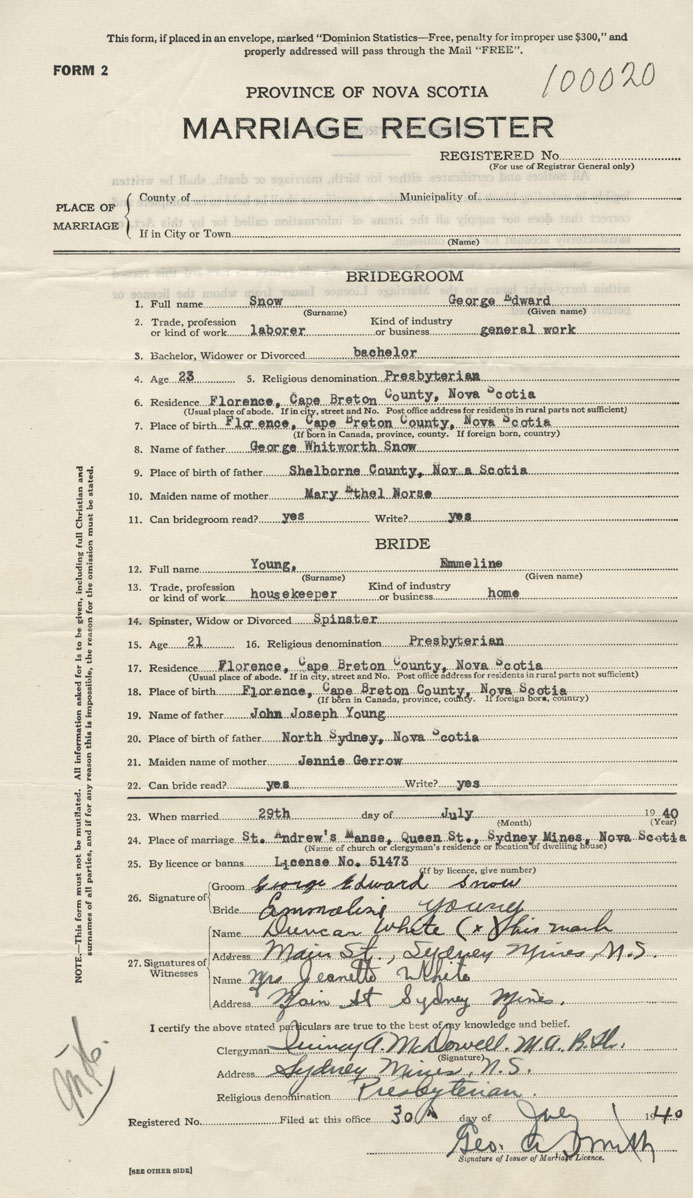 This form, if placed in an envelope, marked "Dominion Statistics—Free, penalty for improper use $300," and
properly addressed will pass through the Mail "FREE".
FORM 2
100020
PROVINCE OF NOVA SCOTIA
MARRIAGE REGISTER
REGISTERED No.
(For use of Registrar General only)
PLACE OF MARRIAGE
County of Municipality of
If in City or Town
(Name)
BRIDEGROOM
1. Full name Snow George Edward
(Surname) (Given name)
2. Trade, profession or kind of work laborer Kind of industry or business general work
3. Bachelor, Widower or Divorced bachelor
4. Age 23 5. Religious denomination Presbyterian
6. Residence Florence, Cape Breton County, Nova Scotia
(Usual place of abode. If in city, street and No. Post office address for residents in rural parts not sufficient)
7. Place of birth Florence, Cape Breton County, Nova Scotia
(If born in Canada, province, county. If foreign born, country)
8. Name of father George Whitworth Snow
9. Place of birth of father Shelborne County, Nova Scotia
10. Maiden name of mother Mary Ethel Norse
11. Can bridegroom read? yes Write? yes
BRIDE
12. Full name Young, Emmeline
(Surname) (Given name)
13. Trade, profession or kind of work housekeeper Kind of industry or business home
14. Spinster, Widow or Divorced Spinster
15. Age 21 16. Religious denomination Presbyterian
17. Residence Florence, Cape Breton County, Nova Scotia
(Usual place of abode. If in city, street and No. Post office address for residents in rural parts not sufficient)
18. Place of birth Florence, Cape Breton County, Nova Scotia
(If born in Canada, province, county. If foreign born, country)
19. Name of father John Joseph Young
20. Place of birth of father North Sydney, Nova Scotia
21. Maiden name of mother Jennie Gerrow
22. Can bride read? yes Write? yes
23. When married 29th day of July 19 40
(Month) (Year)
24. Place of marriage St. Andrew's Manse, Queen St., Sydney Mines, Nova Scotia
(Name of church or clergyman's residence or location of dwelling house)
25. By licence or banns License No. 51473
(If by licence, give number)
26. Signature of
Groom George Edward Snow
Bride Emmaline Young
27. Signatures of Witnesses
Name Duncan White (x) His mark
Address Main St., Sydney Mines, N.S.
Name Mrs Jeanette White
Address Main St Sydney Mines.
I certify the above stated particulars are true to the best of my knowledge and belief.
Clergyman Quincy A. McDowell. M.A. B.Th.
(Signature)
Address Sydney Mines, N.S.
Religious denomination Presbyterian.
Registered No. Filed at this office 30 day of July 1940
Geo. A Smith
Signature of Issuer of Marriage Licence.
[SEE OTHER SIDE]
NOTE.—This form must not be mutilated. All information asked for is to be given, including full Christian and
surnames of all parties, and if for any reason this is impossible, the reason for the omission must be stated.